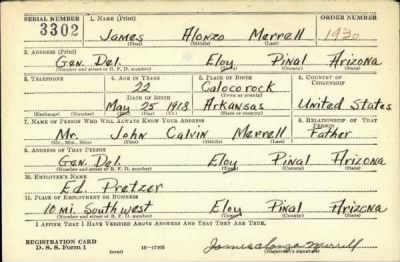 SERIAL NUMBER 1. NAME (Print) ORDER NUMBER
3302 James Alonzo Merrell 1930
(First) (Middle) (Last)
2. ADDRESS (Print)
Gen. Del. Eloy Pinal Arizona
(Number and street or R. F. D. number) (Town) (County) (State)
3. TELEPHONE 4. AGE IN YEARS 5. PLACE OF BIRTH 6. COUNTRY OF CITIZENSHIP
22 Calocorock
DATE OF BIRTH (Town or county)
May 25 1918 Arkansas United States
(Exchange) (No.) (Mo.) (Day) (Yr.) (State or country)
7. NAME OF PERSON WHO WILL ALWAYS KNOW YOUR ADDRESS 8. RELATIONSHIP OF THAT PERSON
Mr. John Calvin Merrell Father
(Mr., Mrs., Miss) (First) (Middle) (Last)
9. ADDRESS OF THAT PERSON
Gen. Del. Eloy Pinal Arizona
(Number and street or R. F. D. number) (Town) (County) (State)
10. EMPLOYER'S NAME
Ed. Pretzer
11. PLACE OF EMPLOYMENT OR BUSINESS
10 mi. Southwest Eloy Pinal Arizona
(Number and street or R. F. D. number) (Town) (County) (State)
I AFFIRM THAT I HAVE VERIFIED ABOVE ANSWERS AND THAT THEY ARE TRUE.
REGISTRATION CARD
D. S. S. Form 1 (over) 16—17105 James Alonzo Merrell
(Registrant's signature)